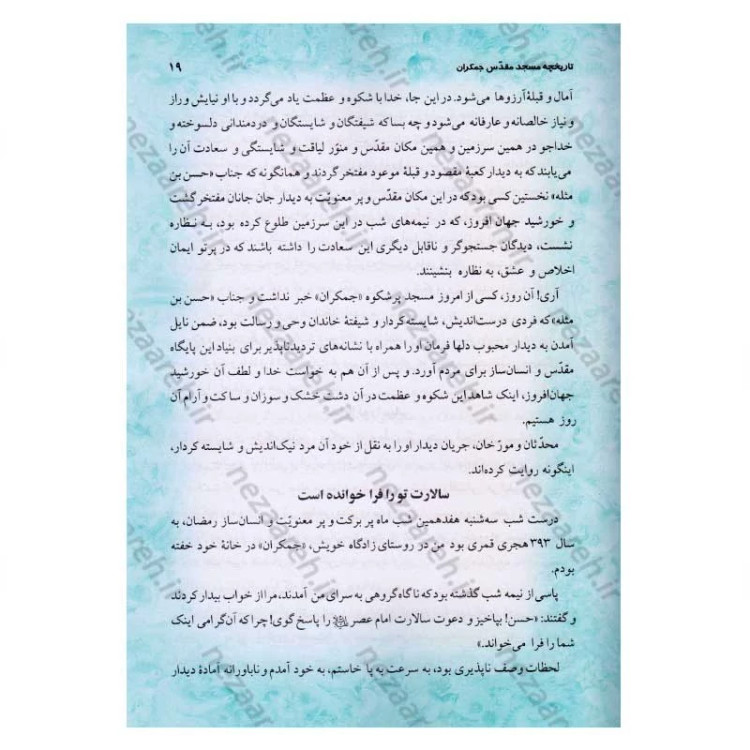 تاریخچه مسجد مقدّس جمکران ۱۹
آمال و قبلهٔ آرزوها می‌شود. در این جا، خدا با شکوه و عظمت یاد می‌گردد و با او نیایش و راز
و نیاز خالصانه و عارفانه می‌شود و چه بسا که شیفتگان و شایستگان و دردمندانی دلسوخته و
خداجو در همین سرزمین و همین مکان مقدّس و منوّر لیاقت و شایستگی و سعادت آن را
می‌یابند که به دیدار کعبهٔ مقصود و قبلهٔ موعود مفتخر گردند و همانگونه که جناب «حسن بن
مثله» نخستین کسی بود که در این مکان مقدّس و پر معنویّت به دیدار جان جانان مفتخر گشت
و خورشید جهان افروز، که در نیمه‌های شب در این سرزمین طلوع کرده بود، به نظاره
نشست، دیدگان جستجوگر و ناقابل دیگری این سعادت را داشته باشند که در پرتو ایمان
اخلاص و عشق، به نظاره بنشینند.
آری! آن روز، کسی از امروز مسجد پرشکوه «جمکران» خبر نداشت و جناب «حسن بن
مثله» که فردی درست‌اندیش، شایسته‌کردار و شیفتهٔ خاندان وحی و رسالت بود، ضمن نایل
آمدن به دیدار محبوب دلها فرمان او را همراه با نشانه‌های تردیدناپذیر برای بنیاد این پایگاه
مقدّس و انسان‌ساز برای مردم آورد. و پس از آن هم به خواست خدا و لطف آن خورشید
جهان‌افروز، اینک شاهد این شکوه و عظمت در آن دشت خشک و سوزان و ساکت و آرام آن
روز هستیم.
محدّثان و مورّخان، جریان دیدار او را به نقل از خود آن مرد نیک‌اندیش و شایسته کردار،
اینگونه روایت کرده‌اند.
سالارت تو را فرا خوانده است
درست شب سه‌شنبه هفدهمین شب ماه پر برکت و پر معنویّت و انسان‌ساز رمضان، به
سال ۳۹۳ هجری قمری بود من در روستای زادگاه خویش، «جمکران» در خانهٔ خود خفته
بودم.
پاسی از نیمه شب گذشته بود که ناگاه گروهی به سرای من آمدند، مرا از خواب بیدار کردند
و گفتند: «حسن! بپاخیز و دعوت سالارت امام عصر را پاسخ گوی! چرا که آن گرامی اینک
شما را فرا می‌خواند.»
لحظات وصف ناپذیری بود، به سرعت به پا خاستم، به خود آمدم و ناباورانه آمادهٔ دیدار
nezaareh.ir